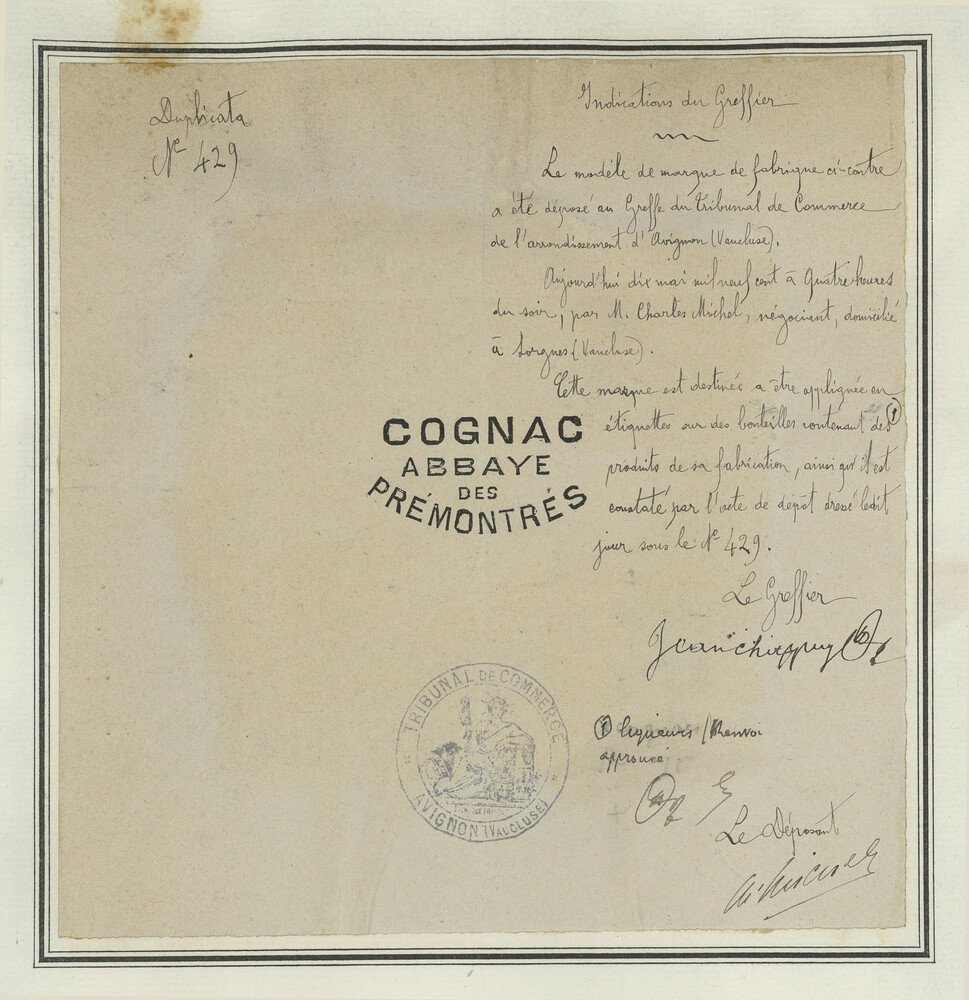 Duplicata
Nº 429
Indications du Greffier
Le modèle de marque de fabrique ci-contre
a été déposé au Greffe du Tribunal de Commerce
de l'arrondissement d'Avignon (Vaucluse).
Aujourd'hui dix mai mil neuf cent à quatre heures
du soir, par M. Charles Michel, négociant, domicilié
à Sorgues (Vaucluse).
Cette marque est destinée a être appliquée en
étiquettes sur des bouteilles contenant des ①
produits de sa fabrication, ainsi qu'il est
constaté par l'acte de dépôt dressé ledit
jour sous le Nº 429.
COGNAC
ABBAYE
DES
PRÉMONTRÉS
Le Greffier
TRIBUNAL DE COMMERCE
AVIGNON (VAUCLUSE)
① liqueurs / Renvoi
approuvé
Le Déposant